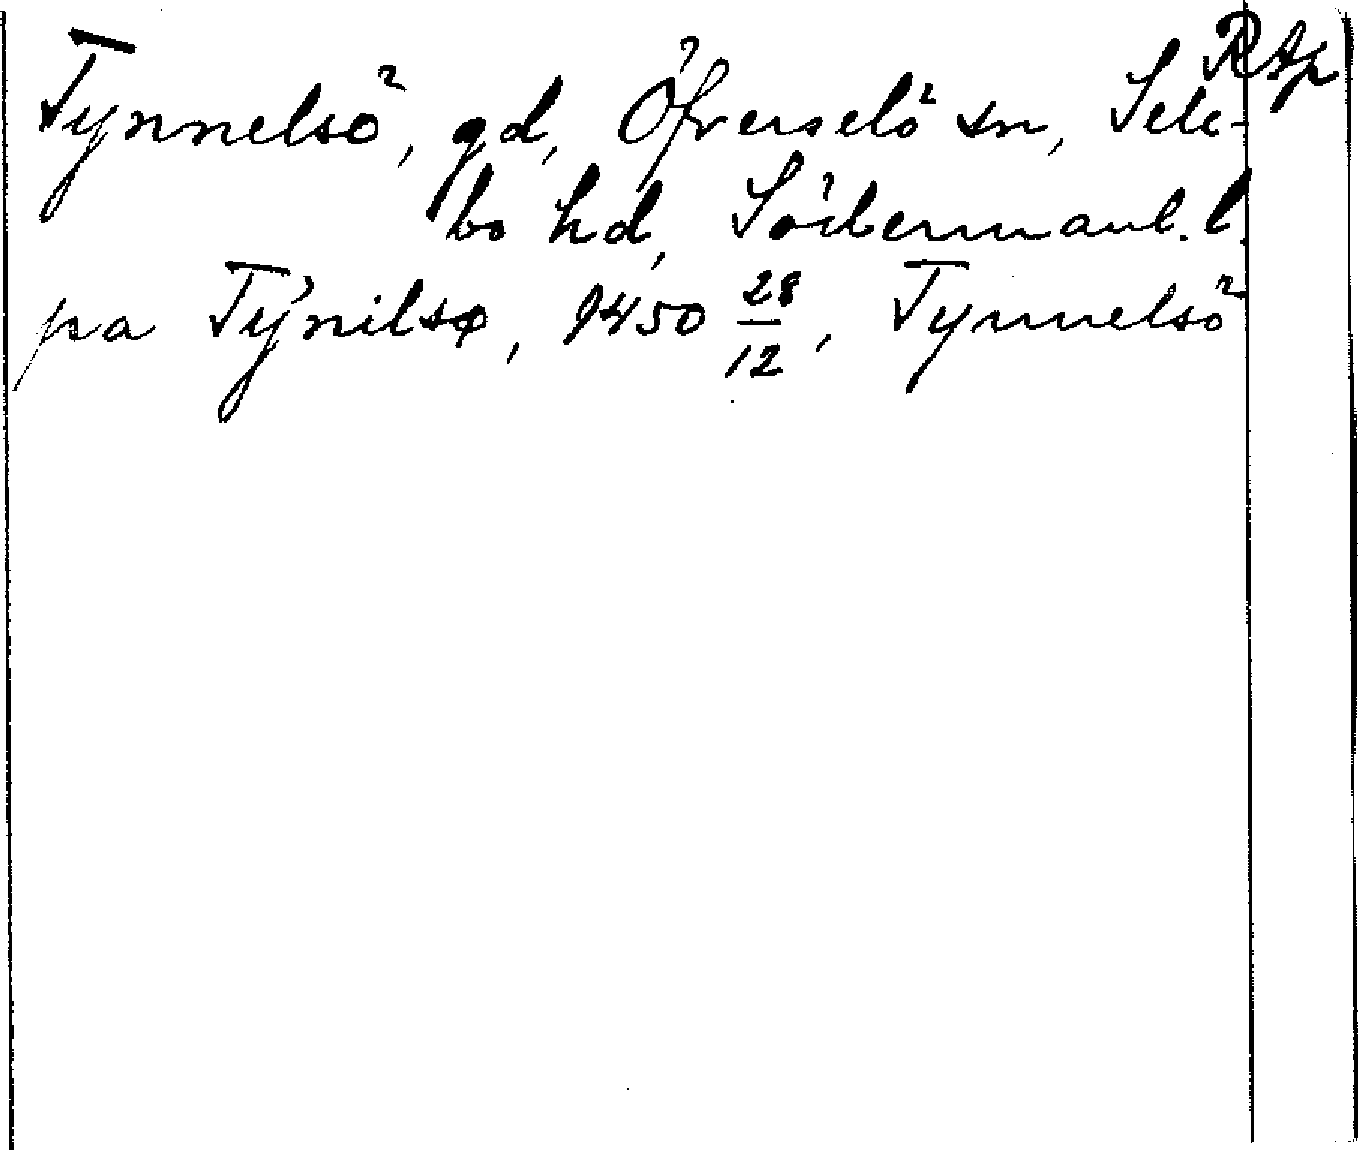 RAp
Tynnelsö, gd, Öfverselö sn, Sele-
bo hd, Södermanl. l.
pa Tÿnilsø, 1450 28/12, Tynnelsö